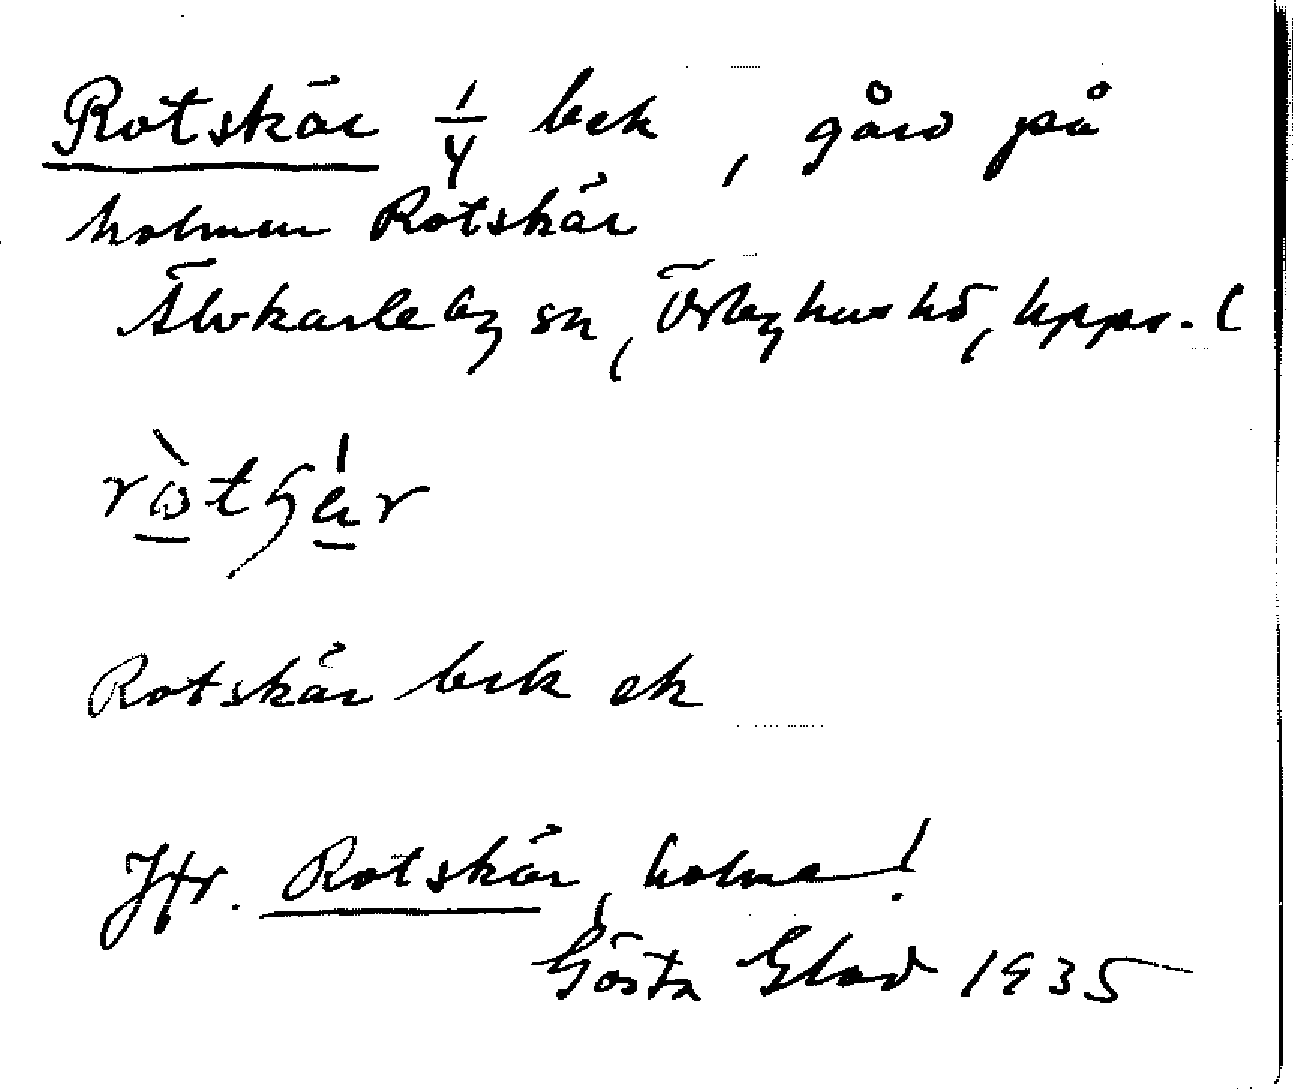 Rotskär 1/4 bek, gård på
holmen Rotskär
Älvkarleby sn, Örbyhus hd, Upps. l
Rotskär bek ek
Jfr. Rotskär, holme!
Gösta Elad 1935